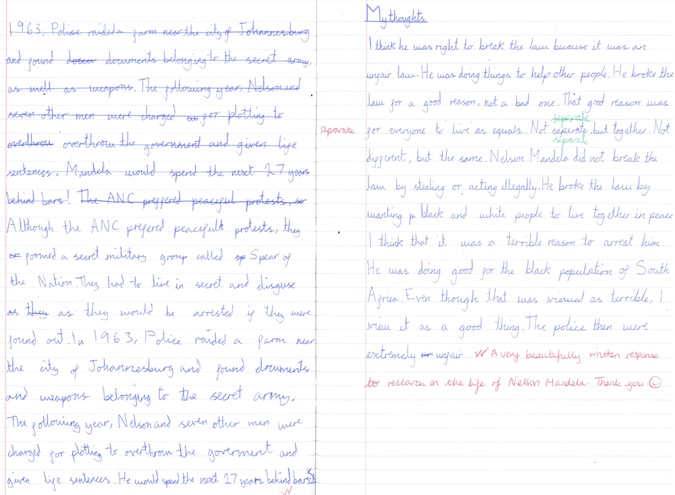 1963, Police raided a farm near the city of Johannesburg
and found documents belonging to the secret army,
as well as weapons. The following year, Nelson and
seven other men were charged for plotting to
overthrow overthrow the government and given life
sentences. Mandela would spend the next 27 years
behind bars! The ANC preffered peaceful protests, so
Although the ANC prefered peacefull protests, they
formed a secret military group called Spear of
the Nation. They had to live in secret and disguse
as they as they would be arrested if they were
found out. In 1963, Police raided a farm near
the city of Johannesburg and found documents
and weapons belonging to the secret army.
The following year, Nelson and seven other men were
charged for plotting to overthrow the goverment and
given life sentences. He would spend the next 27 years behind bars
My thoughts
I think he was right to break the law because it was an
unfair law. He was doing things to help other people. He broke the
law for a good reason, not a bad one. That good reason was
separate
separate
for everyone to live as equals. Not seperate, but together. Not
separate
different, but the same. Nelson Mandela did not break the
law by stealing or acting illegally. He broke the law by
wanting black and white people to live together in peace
I think that it was a terrible reason to arrest him.
He was doing good for the black population of South
Africa. Even though that was viewed as terrible, I
view it as a good thing. The police then were
extremely unfair A very beautifully written response
to research on the life of Nelson Mandela. Thank you ☺